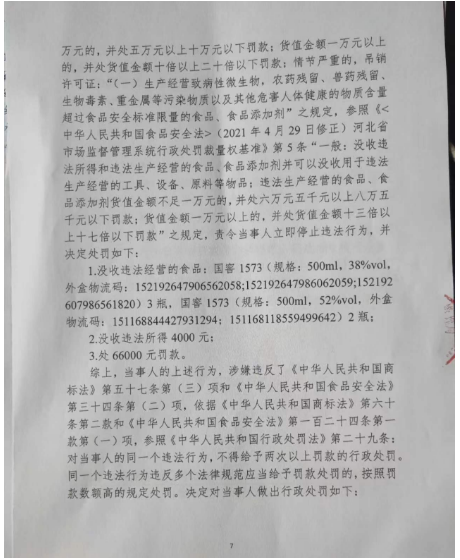 万元的，并处五万元以上十万元以下罚款；货值金额一万元以上
的，并处货值金额十倍以上二十倍以下罚款；情节严重的，吊销
许可证：“（一）生产经营致病性微生物，农药残留、兽药残留、
生物毒素、重金属等污染物质以及其他危害人体健康的物质含量
超过食品安全标准限量的食品、食品添加剂”之规定，参照《<
中华人民共和国食品安全法>（2021年4月29日修正）河北省
市场监督管理系统行政处罚裁量权基准》第5条“一般：没收违
法所得和违法生产经营的食品、食品添加剂并可以没收用于违法
生产经营的工具、设备、原料等物品；违法生产经营的食品、食
品添加剂货值金额不足一万元的，并处六万元五千元以上八万五
千元以下罚款；货值金额一万元以上的，并处货值金额十三倍以
上十七倍以下罚款”之规定，责令当事人立即停止违法行为，并
决定处罚如下：
1.没收违法经营的食品：国窖1573（规格：500ml，38%vol，
外盒物流码：152192647906562058;152192647986062059;152192
607986561820）3瓶，国窖1573（规格：500ml，52%vol，外盒
物流码：151168844427931294；151168118559499642）2瓶；
2.没收违法所得4000元；
3.处66000元罚款。
综上，当事人的上述行为，涉嫌违反了《中华人民共和国商
标法》第五十七条第（三）项和《中华人民共和国食品安全法》
第三十四条第（二）项，依据《中华人民共和国商标法》第六十
条第二款和《中华人民共和国食品安全法》第一百二十四条第一
款第（一）项，参照《中华人民共和国行政处罚法》第二十九条：
对当事人的同一个违法行为，不得给予两次以上罚款的行政处罚。
同一个违法行为违反多个法律规范应当给予罚款处罚的，按照罚
款数额高的规定处罚。决定对当事人做出行政处罚如下：
7